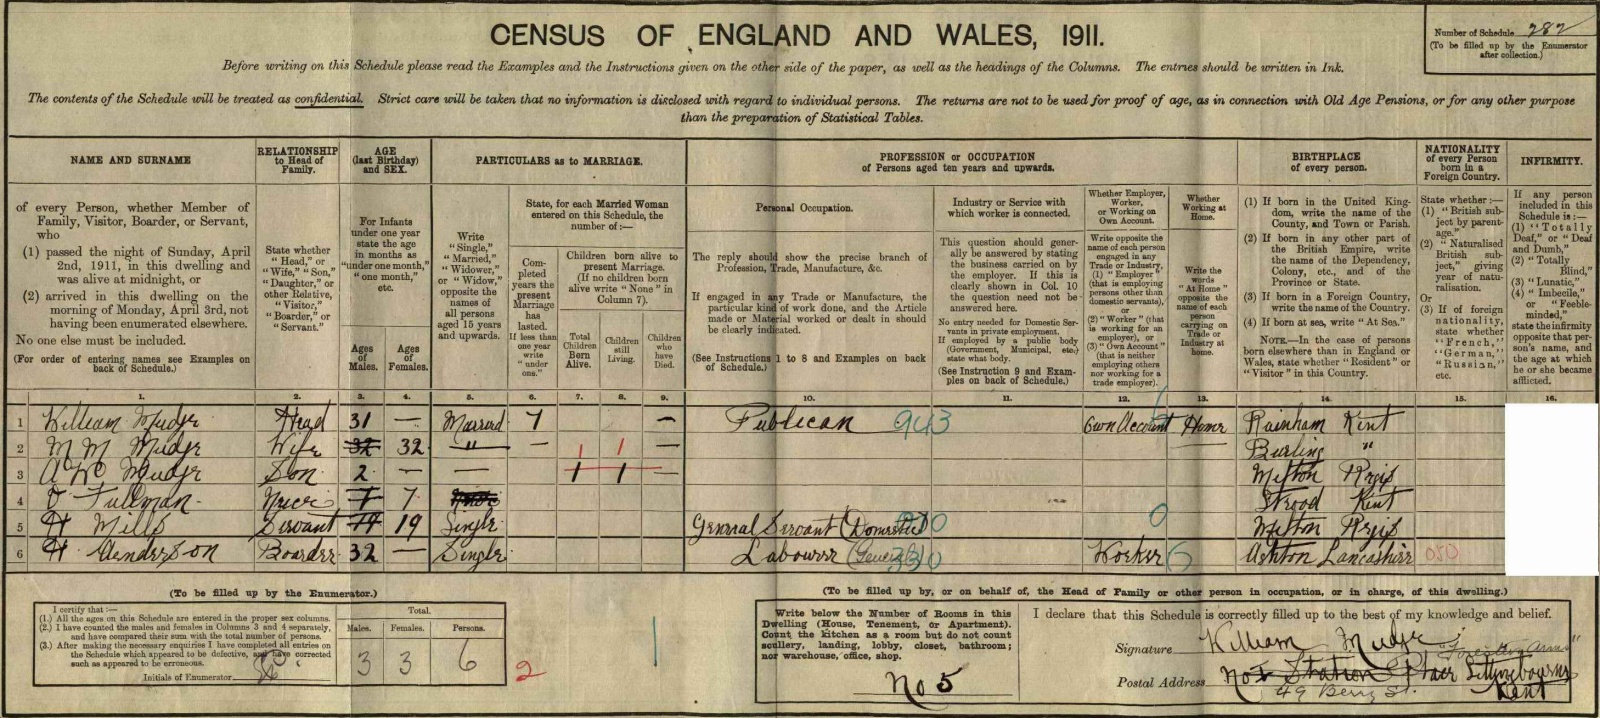 CENSUS OF ENGLAND AND WALES, 1911.
Number of Schedule 282
(To be filled up by the Enumerator
after collection.)
Before writing on this Schedule please read the Examples and the Instructions given on the other side of the paper, as well as the headings of the Columns. The entries should be written in Ink.
The contents of the Schedule will be treated as confidential. Strict care will be taken that no information is disclosed with regard to individual persons. The returns are not to be used for proof of age, as in connection with Old Age Pensions, or for any other purpose
than the preparation of Statistical Tables.
NAME AND SURNAME
of every Person, whether Member of
Family, Visitor, Boarder, or Servant,
who
(1) passed the night of Sunday, April
2nd, 1911, in this dwelling and
was alive at midnight, or
(2) arrived in this dwelling on the
morning of Monday, April 3rd, not
having been enumerated elsewhere.
No one else must be included.
(For order of entering names see Examples on
back of Schedule.)
RELATIONSHIP
to Head of
Family.
State whether
"Head," or
"Wife," "Son,"
"Daughter," or
other Relative,
"Visitor,"
"Boarder," or
"Servant."
AGE
(last Birthday)
and SEX.
For Infants
under one year
state the age
in months as
"under one month,"
"one month,"
etc.
Ages
of
Males.
Ages
of
Females.
PARTICULARS as to MARRIAGE.
Write
"Single,"
"Married,"
"Widower,"
or "Widow,"
opposite the
names of
all persons
aged 15 years
and upwards.
State, for each Married Woman
entered on this Schedule, the
number of:—
Com-
pleted
years the
present
Marriage
has
lasted.
If less than
one year
write
"under
one."
Children born alive to
present Marriage.
(If no children born
alive write "None" in
Column 7).
Total
Children
Born
Alive.
Children
still
Living.
Children
who
have
Died.
PROFESSION or OCCUPATION
of Persons aged ten years and upwards.
Personal Occupation.
The reply should show the precise branch of
Profession, Trade, Manufacture, &c.
If engaged in any Trade or Manufacture, the
particular kind of work done, and the Article
made or Material worked or dealt in should
be clearly indicated.
(See Instructions 1 to 8 and Examples on back
of Schedule.)
Industry or Service with
which worker is connected.
This question should gener-
ally be answered by stating
the business carried on by
the employer. If this is
clearly shown in Col. 10
the question need not be
answered here.
No entry needed for Domestic Ser-
vants in private employment.
If employed by a public body
(Government, Municipal, etc.)
state what body.
(See Instruction 9 and Exam-
ples on back of Schedule.)
Whether Employer,
Worker,
or Working on
Own Account.
Write opposite the
name of each person
engaged in any
Trade or Industry,
(1) "Employer"
(that is employing
persons other than
domestic servants),
or
(2) "Worker" (that
is working for an
employer), or
(3) "Own Account"
(that is neither
employing others
nor working for a
trade employer).
Whether
Working at
Home.
Write the
words
"At Home"
opposite the
name of each
person
carrying on
Trade or
Industry at
home.
BIRTHPLACE
of every person.
(1) If born in the United King-
dom, write the name of the
County, and Town or Parish.
(2) If born in any other part of
the British Empire, write
the name of the Dependency,
Colony, etc., and of the
Province or State.
(3) If born in a Foreign Country,
write the name of the Country.
(4) If born at sea, write "At Sea."
NOTE.—In the case of persons
born elsewhere than in England or
Wales, state whether "Resident" or
"Visitor" in this Country.
NATIONALITY
of every Person
born in a
Foreign Country.
State whether:—
(1) "British sub-
ject by parent-
age."
(2) "Naturalised
British sub-
ject," giving
year of natu-
ralisation.
Or
(3) If of foreign
nationality,
state whether
"French,"
"German,"
"Russian,"
etc.
INFIRMITY.
If any person
included in this
Schedule is:—
(1) "Totally
Deaf," or "Deaf
and Dumb,"
(2) "Totally
Blind,"
(3) "Lunatic,"
(4) "Imbecile,"
or "Feeble-
minded,"
state the infirmity
opposite that per-
son's name, and
the age at which
he or she became
afflicted.
1. 2. 3. 4. 5. 6. 7. 8. 9. 10. 11. 12. 13. 14. 15. 16.
1 William Mudge Head 31 — Married 7 — Publican 943 Own Account Home Rainham Kent
2 M M Mudge Wife 32 32 " — 1 1 — Burling "
3 A W Mudge Son 2 — — 1 1 Milton Regis
4 Fullman Niece 7 7 Strood Kent
5 H Mills Servant 19 19 Single General Servant (Domestic) 0 Milton Regis
6 H Henderson Boarder 32 — Single Labourer (General) Worker 6 Ashton Lancashire
(To be filled up by the Enumerator.)
I certify that:—
(1.) All the ages on this Schedule are entered in the proper sex columns.
(2.) I have counted the males and females in Columns 3 and 4 separately,
and have compared their sum with the total number of persons.
(3.) After making the necessary enquiries I have completed all entries on
the Schedule which appeared to be defective, and have corrected
such as appeared to be erroneous.
Initials of Enumerator
Total.
Males. Females. Persons.
3 3 6
2
(To be filled up by, or on behalf of, the Head of Family or other person in occupation, or in charge, of this dwelling.)
Write below the Number of Rooms in this
Dwelling (House, Tenement, or Apartment).
Count the kitchen as a room but do not count
scullery, landing, lobby, closet, bathroom;
nor warehouse, office, shop.
No 5
I declare that this Schedule is correctly filled up to the best of my knowledge and belief.
Signature William Mudge
Foresters Arms
Postal Address No 1 Station Place Sittingbourne
49 Berry St. Kent